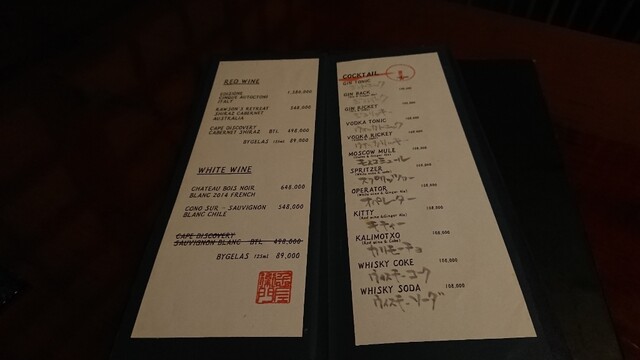 RED WINE
1,280,000
ITALY
RAWSON'S RETREAT 548,000
SHIRAZ CABERNET
AUSTRALIA
CAPE DISCOVERY
CABERNET SHIRAZ BTL 498,000
BYGELAS (125ml) 89,000
WHITE WINE
CHATEAU BOIS NOIR 648,000
BLANC 2014 FRENCH
CONO SUR - SAUVIGNON 548,000
BLANC CHILE
CAPE DISCOVERY
SAUVIGNON BLANC BTL 498,000
BYGELAS (125ml) 89,000
COCKTAIL
GIN TONIC
GIN BACK
GIN RICKET
VODKA TONIC
VODKA RICKET
MOSCOW MULE 108,000
モスコミュール
SPRITZER 108,000
スプリッツァー
OPERATOR 108,000
(White wine & Ginger Ale)
オペレーター
KITTY 108,000
(Red wine & Ginger Ale)
キティー
KALIMOTXO 108,000
(Red wine & Coke)
カリモーチョ
WHISKY COKE 108,000
ウィスキーコーク
WHISKY SODA 108,000
ウィスキーソーダ